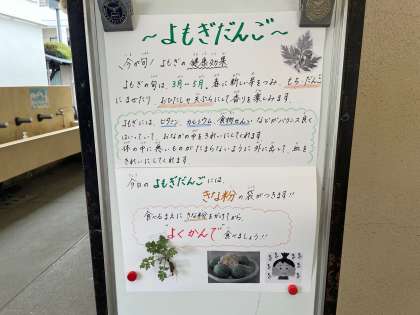 ～よもぎだんご～
今が旬！よもぎの健康効果
よもぎの旬は、3月～5月。春に新しい芽をつみ、もち、だんご
にまぜたり、おひたしや天ぷらにして香りを楽しみます。
よもぎには、ビタミン、カルシウム、食物せんい などがバランス良く
はいっていて、おなかの中をきれいにしてくれます。
体の中に悪いものがたまらないように外に出して、血を
きれいにしてくれます。
今日のよもぎだんごには
きな粉の袋がつきます!!
食べるまえにきな粉をかけてから、
"よくかんで"食べましょう!!